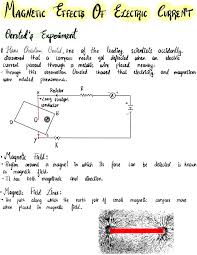 MAGNETIC EFFECTS OF ELECTRIC CURRENT
Oersted's Experiment
Hans Christian Oersted, one of the leading scientists accidently
discovered that a compass needle got deflected when an electric
current passed through a metallic wire placed nearby.
Through this observation Oersted showed that electricity and magnetism
were related phenomena.
Resistor
X
Y
K
• Magnetic Field:
Region around a magnet in which its force can be detected is known
as magnetic field.
It has both magnitude and direction.
• Magnetic Field Lines:
The path along which the north pole of small magnetic compass moves
when placed in magnetic field.